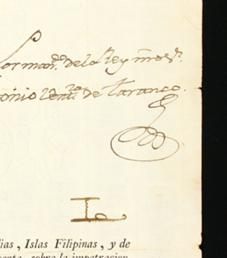 Por man.^do del Rey nro s.^r
onio Vent.^ra de Taranco.
L
dias, Islas Filipinas, y de
sobre la impetracion